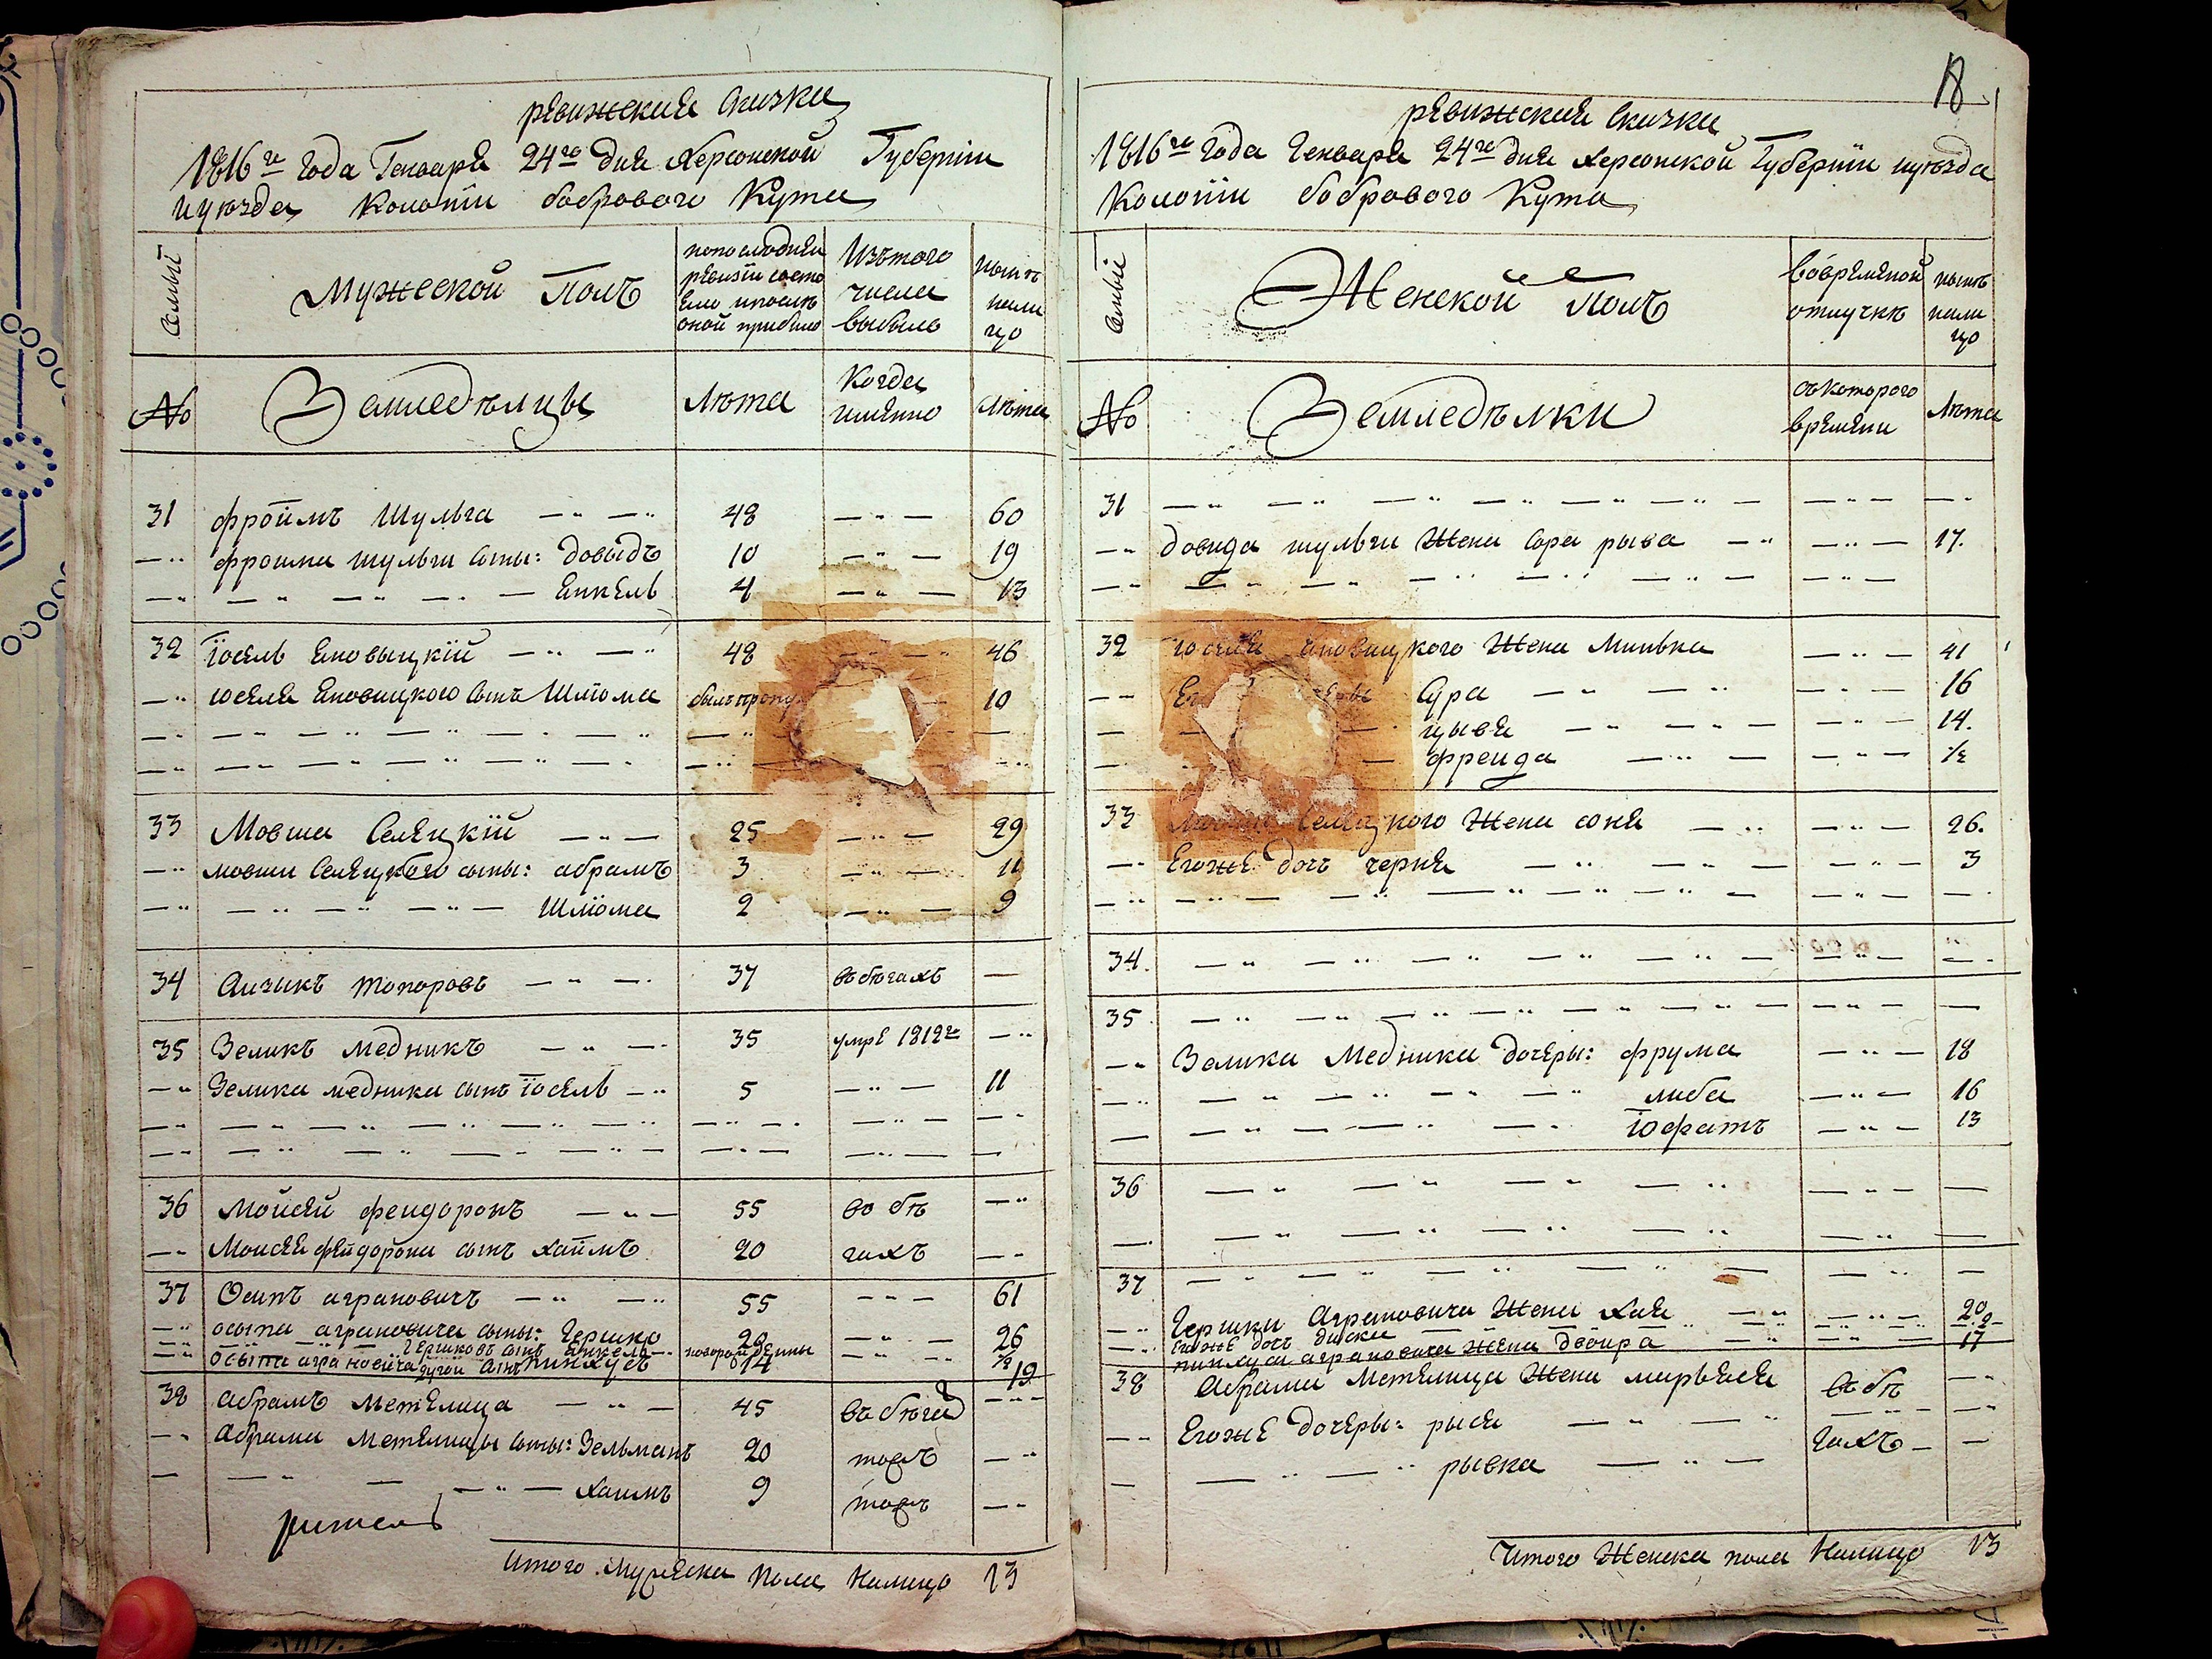 ревижския скизки
1816го года Генваря 24го дня Херсонской Губернии
иуезда Колонии бобрового Кута
Семьи
Мужеской Полъ
попоследнеи
ревизiи состо
яло ипосле
оной прибыло
Изътого
числа
выбыло
ныне
нали
цо
№
Земледельцы
Лета
Когда
имянно
Лета
31 фроимъ Шульга 48 60
фроима шульги сыны: довыдъ 10 19
Енкель 4 13
32 Iосель Яновыцкiй 48 46
Iоселя Яновицкого сынъ Шлiома былъ пропу 10
33 Мовша Селяцкiй 25 29
мовши Селяцкого сыны: абрамъ 3 11
Шлiома 2 9
34 Аизыкъ топоровъ 37 въбегахъ
35 Зеликъ медникъ 35 умре 1812го
Зелика медника сынъ Iосель 5 11
36 Мойсей феидоронъ 55 во бе
Моисея фейдорона сынъ хаимъ 20 гахъ
37 Осипъ аграновичъ 55 61
осыпа аграновича сыны: Гершко 20 26
Гершковъ сынъ янкель новорожденны 1/2
осыпа аграновича другой сынъ пинхусъ 14 19
38 абрамъ метелица 45 въ бегах
Абрама метелицы сыны: Зельманъ 20 тожъ
Хаимъ 9 тожъ
Итого Мужеска Пола Налицо 13
18
ревижския скизки
1816го года Генваря 24го дня Херсонской Губернiи иуезда
Колонiи бобрового Кута
Семьи
Женской полъ
вовремяной
отлучке
ныне
нали
цо
№
Земледелки
съкоторого
времяни
Лета
31
довида шульги Жена Сора рыва 17.
32 Iоселя яновицкого Жена Минька 41
Сура 16
цывья 14.
фреида 1/2
33 Селяцкого Жена соня 26.
Егожъ дочъ черня 3
34.
35
Зелика Медника дочеры: фрума 18
либа 16
Iофатъ 13
36
37
Гершки Аграновича Жена хая 20
Егоже дочъ 2
пинхуса аграновича жена двоира 17
38 Абрама Метелица Жена мирьяся въ бе
Егоже дочеры: рыся гахъ
рывка
Итого Женска пола Налицо 13